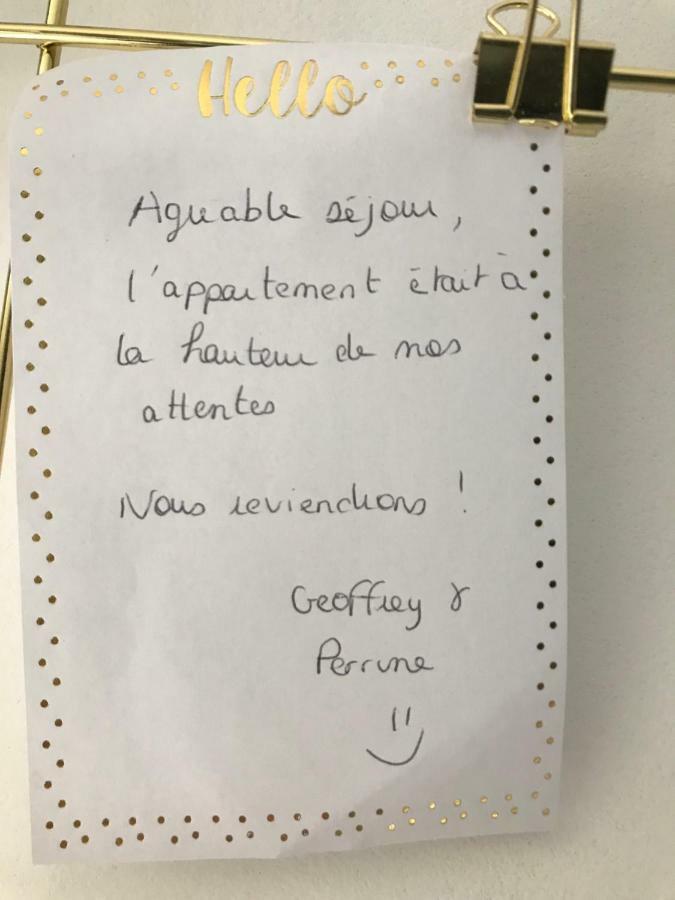 Hello
Agréable séjour,
l'appartement était à
la hauteur de nos
attentes
Nous reviendrons !
Geoffrey &
Perrine